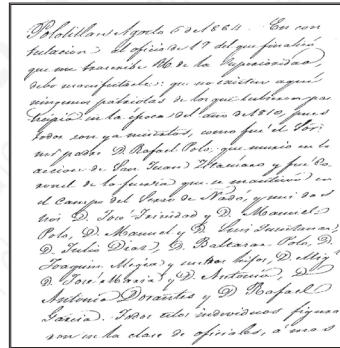 Pololitlan Agosto 6 de 1884. En con
testacion al oficio de 17 del que finalizó
que me trascribe de la Superioridad,
debo manifestarle: que no existen aquí
ningunos patriotas de los que hubieren par
ticipio en la época del año de 1810, pues
todos son ya muertos, como fué el Sor
mi padre D. Rafael Polo que murio en la
accion de San Juan y fué Co
ronel de la fuerza que se mantuvo en
el Campo del Serro de Nadó, y mis dos
tios D. José Trinidad y D. Manuel
Polo, D. Manuel y D. Luis Quintanar,
D. Julio Diaz, D. Baltazar Polo, D.
Joaquin Mejia y sus tres hijos, D.
D. José Maria y D. Antonio, D.
Antonio Dorantes y D. Rafael
Garcia. Todos estos individuos figura
ron en la clase de oficiales, á mas